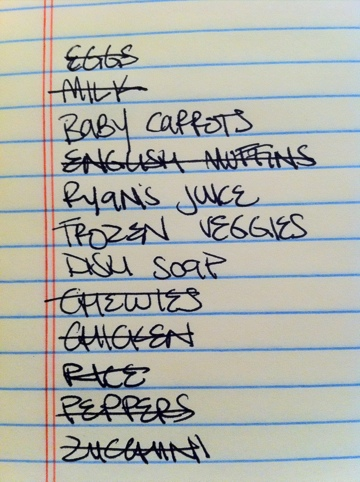 EGGS
MILK
BABY CARROTS
ENGLISH MUFFINS
RYAN'S JUICE
FROZEN VEGGIES
DISH SOAP
CHEWIES
CHICKEN
RICE
PEPPERS
ZUCCHINI